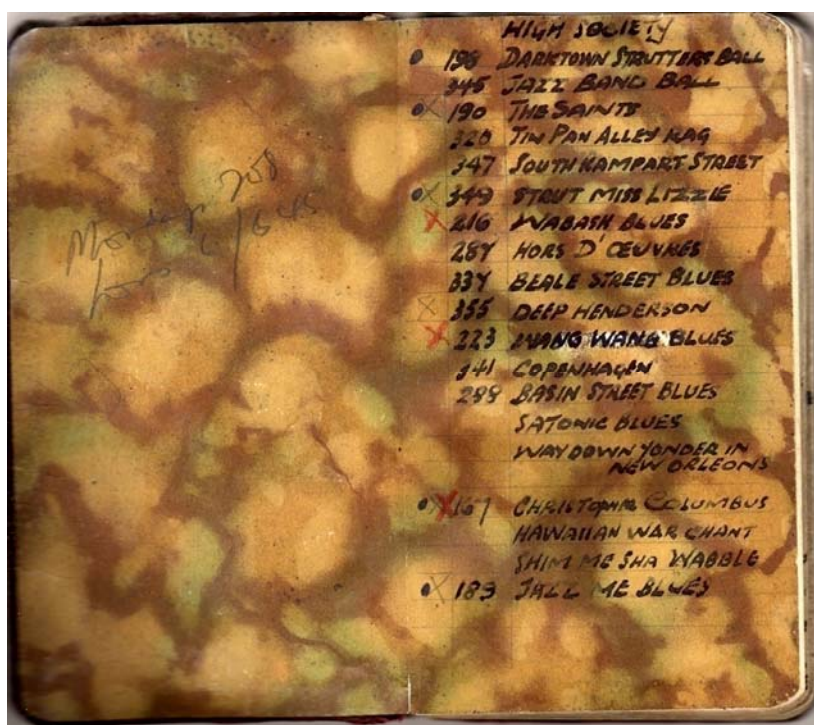 Monday 208
HIGH SOCIETY
198 DARKTOWN STRUTTERS BALL
345 JAZZ BAND BALL
X 190 THE SAINTS
320 TIN PAN ALLEY RAG
347 SOUTH RAMPART STREET
X 349 STRUT MISS LIZZIE
X 216 WABASH BLUES
287 HORS D'ŒUVRES
337 BEALE STREET BLUES
X 355 DEEP HENDERSON
X 223 WANG WANG BLUES
341 COPENHAGEN
288 BASIN STREET BLUES
SATONIC BLUES
WAY DOWN YONDER IN
NEW ORLEONS
X 167 CHRISTOPHR COLUMBUS
HAWAIIAN WAR CHANT
SHIM ME SHA WABBLE
X 189 JAZZ ME BLUES